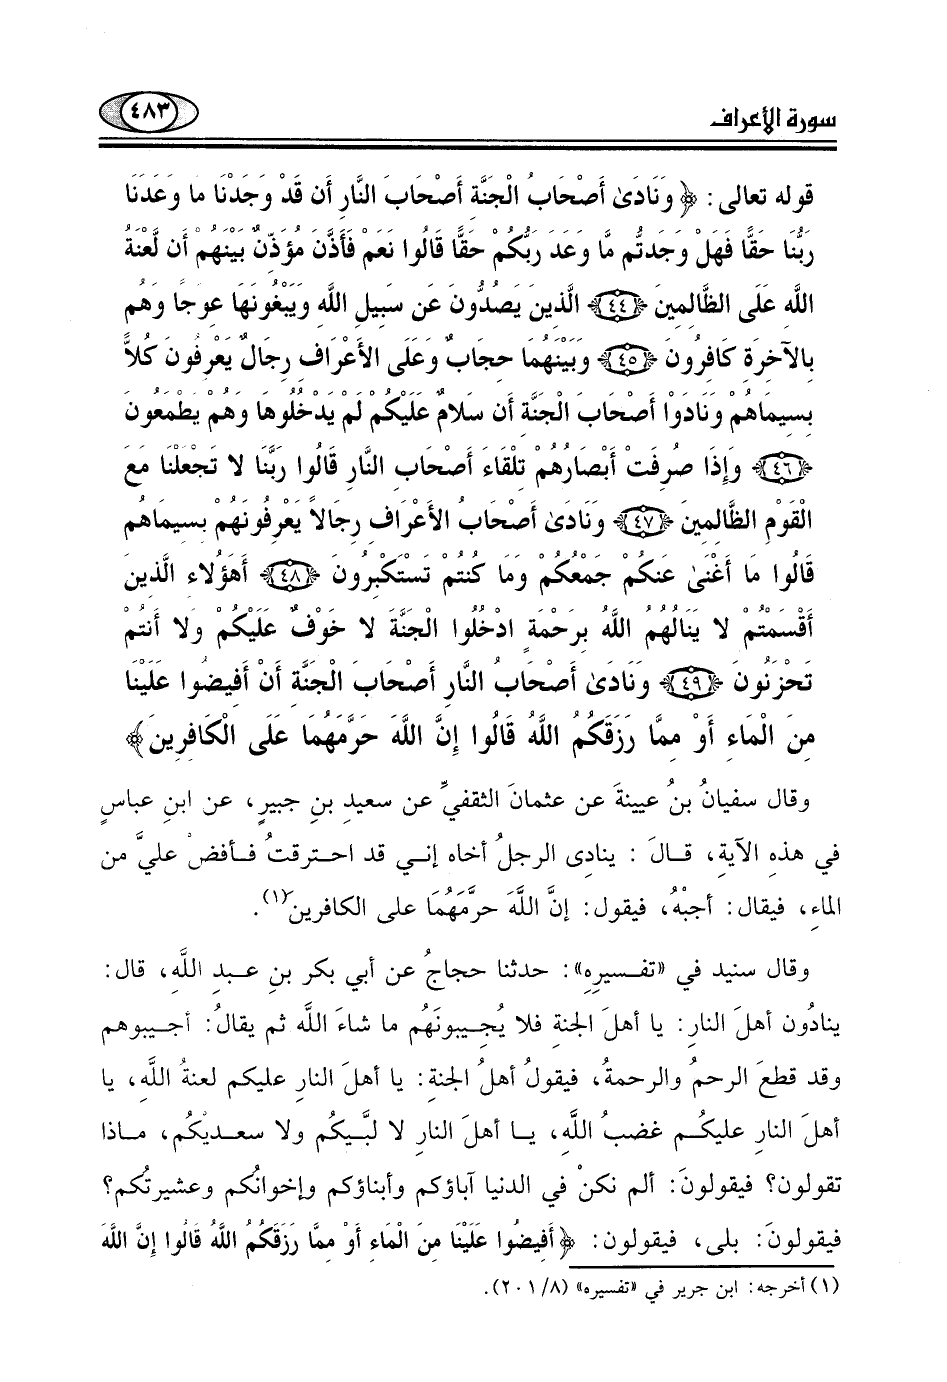 سورة الأعراف
٤٨٣
قوله تعالى: ﴿وَنَادَىٰ أَصْحَابُ الْجَنَّةِ أَصْحَابَ النَّارِ أَن قَدْ وَجَدْنَا ما وَعَدَنَا
رَبُّنَا حَقًّا فَهَلْ وَجَدتُّم مَّا وَعَدَ رَبُّكُمْ حَقًّا قَالُوا نَعَمْ فَأَذَّنَ مُؤَذِّنٌ بَيْنَهُمْ أَن لَّعْنَةُ
اللَّهِ عَلَى الظَّالِمِينَ ﴿٤٤﴾ الَّذِينَ يَصُدُّونَ عَن سَبِيلِ اللَّهِ وَيَبْغُونَهَا عِوَجًا وَهُم
بِالآخِرَةِ كَافِرُونَ ﴿٤٥﴾ وَبَيْنَهُمَا حِجَابٌ وَعَلَى الأَعْرَافِ رِجَالٌ يَعْرِفُونَ كُلاًّ
بِسِيمَاهُمْ وَنَادَوْا أَصْحَابَ الْجَنَّةِ أَن سَلامٌ عَلَيْكُمْ لَمْ يَدْخُلُوهَا وَهُمْ يَطْمَعُونَ
﴿٤٦﴾ وَإِذَا صُرِفَتْ أَبْصَارُهُمْ تِلْقَاءَ أَصْحَابِ النَّارِ قَالُوا رَبَّنَا لا تَجْعَلْنَا مَعَ
الْقَوْمِ الظَّالِمِينَ ﴿٤٧﴾ وَنَادَىٰ أَصْحَابُ الأَعْرَافِ رِجَالاً يَعْرِفُونَهُم بِسِيمَاهُم
قَالُوا مَا أَغْنَىٰ عَنكُمْ جَمْعُكُمْ وَمَا كُنتُمْ تَسْتَكْبِرُونَ ﴿٤٨﴾ أَهَؤُلاءِ الَّذِينَ
أَقْسَمْتُمْ لا يَنَالُهُمُ اللَّهُ بِرَحْمَةٍ ادْخُلُوا الْجَنَّةَ لا خَوْفٌ عَلَيْكُمْ وَلا أَنتُمْ
تَحْزَنُونَ ﴿٤٩﴾ وَنَادَىٰ أَصْحَابُ النَّارِ أَصْحَابَ الْجَنَّةِ أَنْ أَفِيضُوا عَلَيْنَا
مِنَ الْمَاءِ أَوْ مِمَّا رَزَقَكُمُ اللَّهُ قَالُوا إِنَّ اللَّهَ حَرَّمَهُمَا عَلَى الْكَافِرِينَ﴾
وقال سفيانُ بنُ عيينةَ عن عثمانَ الثقفيِّ عن سعيدِ بنِ جبيرٍ، عن ابنِ عباسٍ
في هذهِ الآيةِ، قـالَ : ينادى الرجلُ أخاه إنـي قد احـترقتُ فـأفض علـيَّ من
الماءِ، فيقال: أجبْهُ، فيقول: إنَّ اللَّهَ حرَّمَهُمَا على الكافرين(١).
وقال سنيد في «تفسيرِهِ»: حدثنا حجاجُ عن أبي بكر بنِ عـبدِ اللَّهِ، قال:
ينادُون أهلَ النارِ: يا أهلَ الجنةِ فلا يُجـيبونَهُم ما شاءَ الله ثم يقالُ: أجـيبوهم
وقد قطعَ الرحمُ والرحمةُ، فيقولُ أهلُ الجنةِ: يا أهلَ النارِ عليكم لعنةُ اللهِ، يا
أهلَ النارِ عليكُـم غضبُ اللَّهِ، يـا أهـلَ النارِ لا لبَّيكُم ولا سعـديكُم، مـاذا
تقولون؟ فيقولونَ: ألم نكنْ في الدنيا آباؤكم وأبناؤكم وإخوانُكُم وعشيرتُكم؟
فيقولونَ: بلى، فيقولون: ﴿أَفِيضُوا عَلَيْنَا مِنَ الْمَاءِ أَوْ مِمَّا رَزَقَكُمُ اللَّهُ قَالُوا إِنَّ اللَّهَ
(١) أخرجه: ابن جرير في «تفسيره» (٨/ ٢٠١).